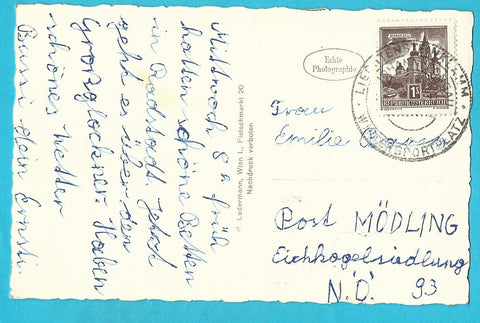 Mittwoch 8h früh
hatten schöne Betten
in Radstadt. Jetzt
geht es über den
Großglockner. Haben
schönes Wetter
Bussi dein Ernsti
P. Ledermann, Wien I., Fleischmarkt 20
Nachdruck verboten
Echte
Photographie
1S
REPUBLIK ÖSTERREICH
WINTERSPORTPLATZ
Frau
Emilie
Post MÖDLING
Eichkogelsiedlung
N.Ö. 93